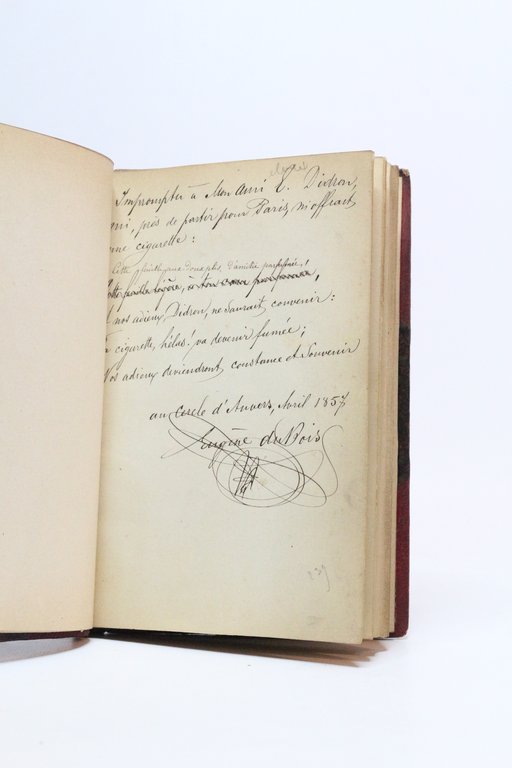 Impromptu à Mon ami E. Didron,
qui, près de partir pour Paris, m'offrait
une cigarette :
Cette feuille aux doux plis, d'amitié parfumée,
à ton
nos adieux, Didron, ne saurait convenir :
cigarette, hélas ! va devenir fumée ;
Nos adieux deviendront, constance et Souvenir
au Cercle d'Anvers, Avril 1857
Eugène du Bois